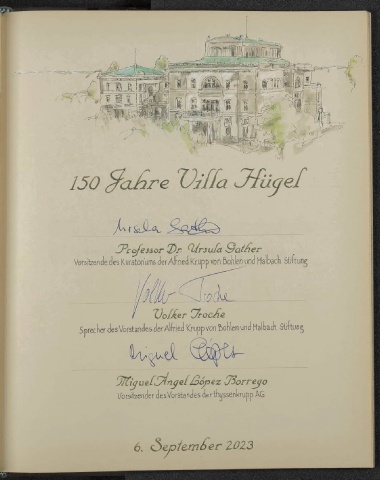 150 Jahre Villa Hügel
Ursula Gather
Professor Dr. Ursula Gather
Vorsitzende des Kuratoriums der Alfried Krupp von Bohlen und Halbach Stiftung
Volker Troche
Volker Troche
Sprecher des Vorstandes der Alfried Krupp von Bohlen und Halbach Stiftung
Miguel López
Miguel Ángel López Borrego
Vorsitzender des Vorstandes der thyssenkrupp AG
6. September 2023